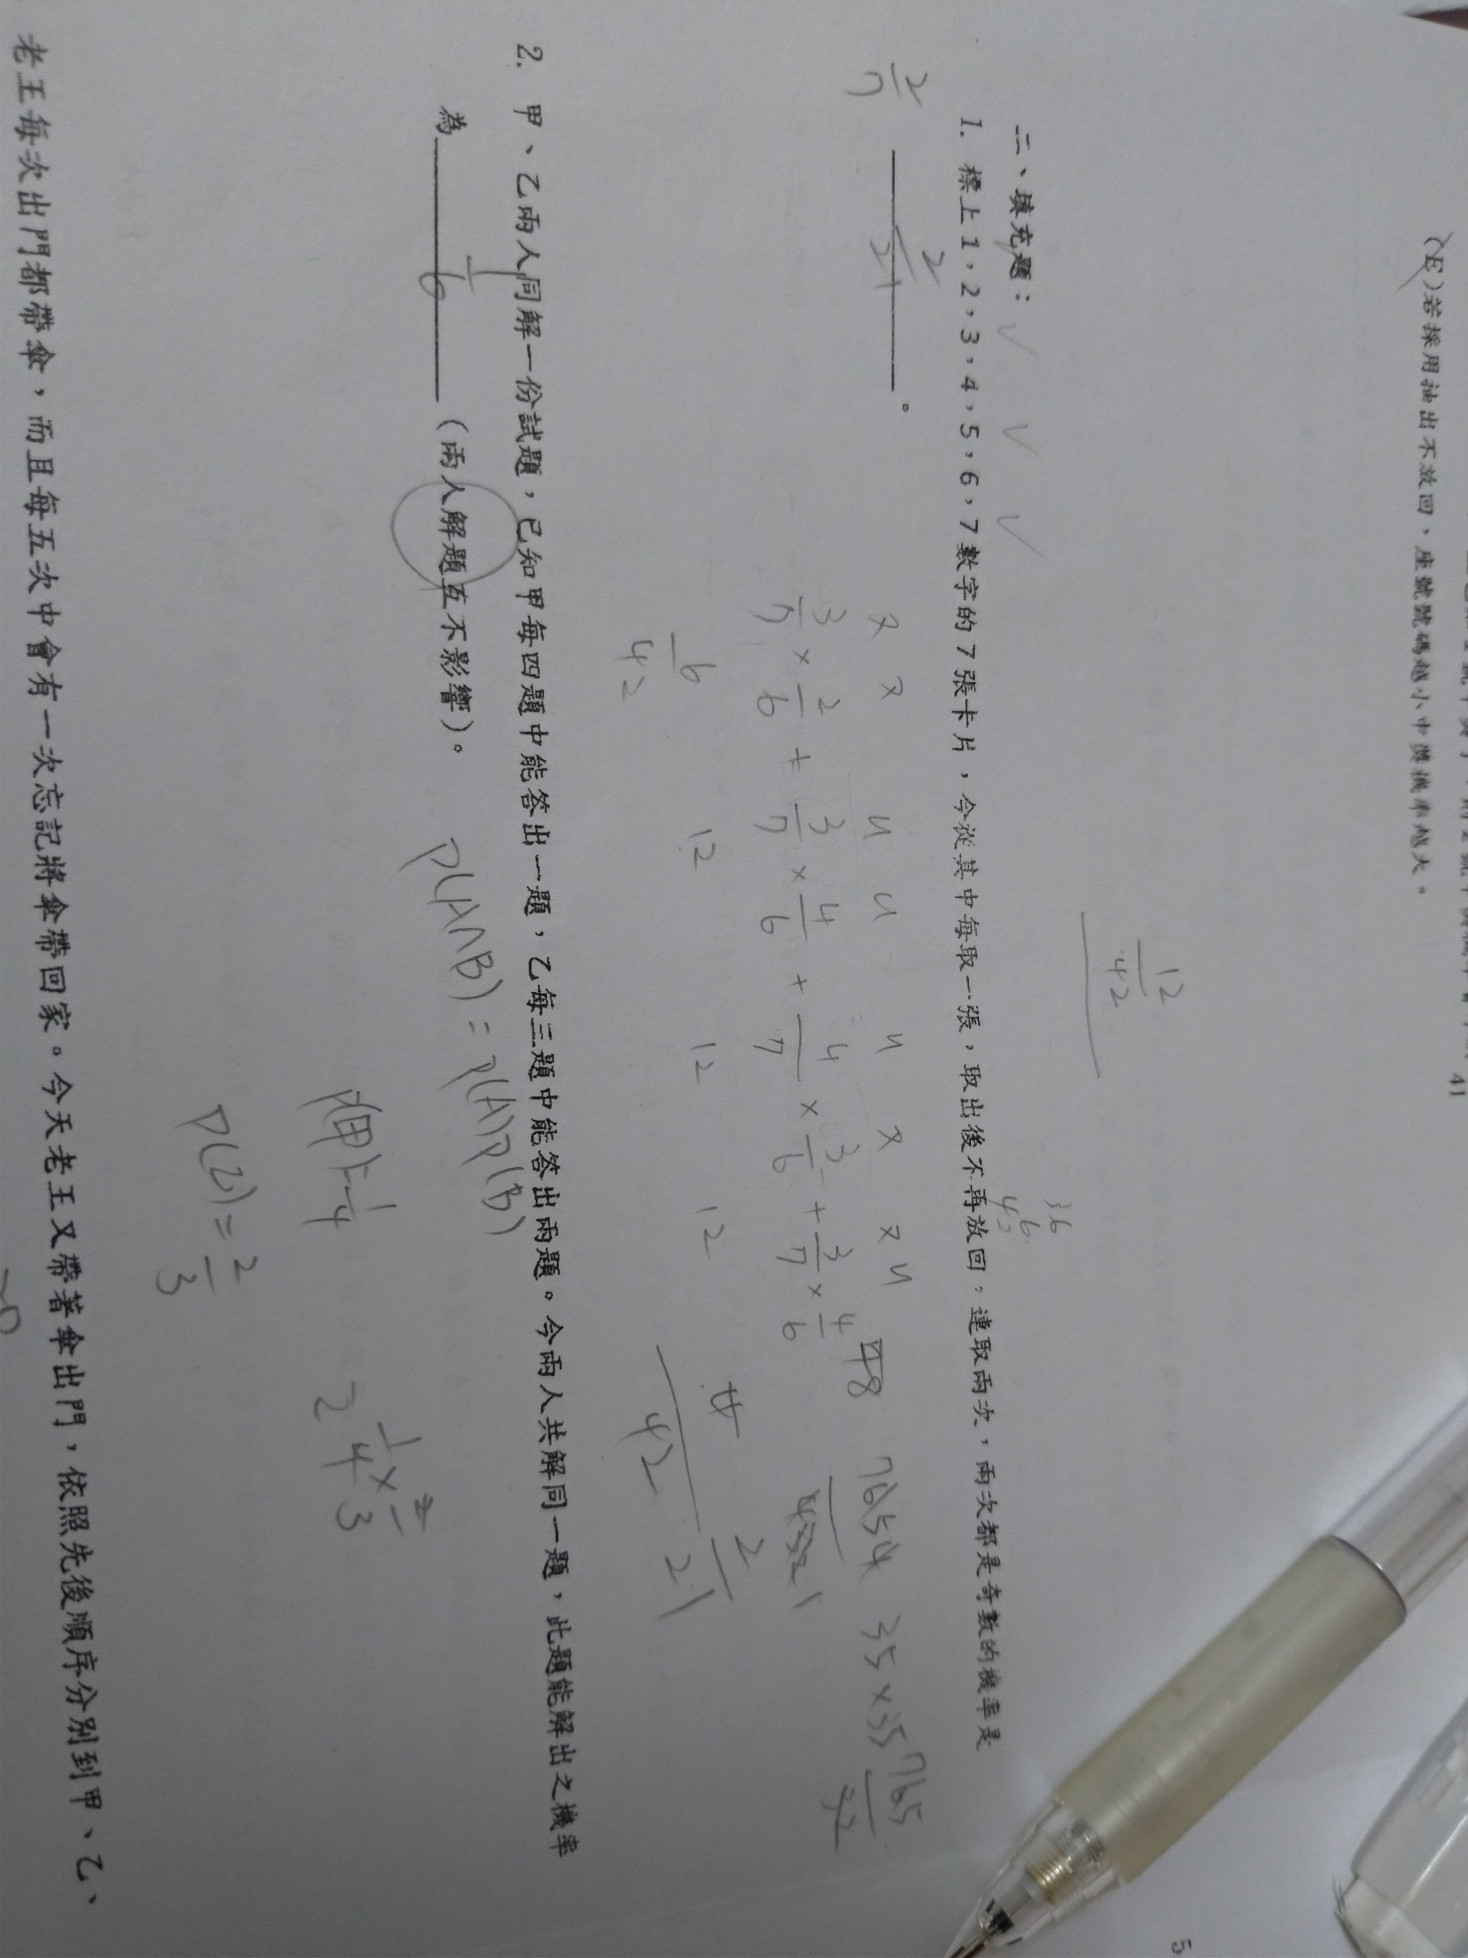 (E)若採用抽出不放回，座號號碼越小中獎機率越大。
41
12
42
二、填充題：
1. 標上1，2，3，4，5，6，7數字的7張卡片，今從其中每取一張，取出後不再放回，連取兩次，兩次都是奇數的機率是
2/21。
2/7
36
6
42
3/7 × 2/6 + 3/7 × 4/6 + 4/7 × 3/6 + 3/7 × 4/6
6 12 12 12
42
48
7654
4321
35×35
765
42
2
21
2. 甲、乙兩人同解一份試題，已知甲每四題中能答出一題，乙每三題中能答出兩題。今兩人共解同一題，此題能解出之機率
為 1/6 （兩人解題互不影響）。
P(A∩B)=P(A)P(B)
P(甲)=1/4
1/4 × 2/3
P(乙)=2/3
老王每次出門都帶傘，而且每五次中會有一次忘記將傘帶回家。今天老王又帶著傘出門，依照先後順序分別到甲、乙、
5